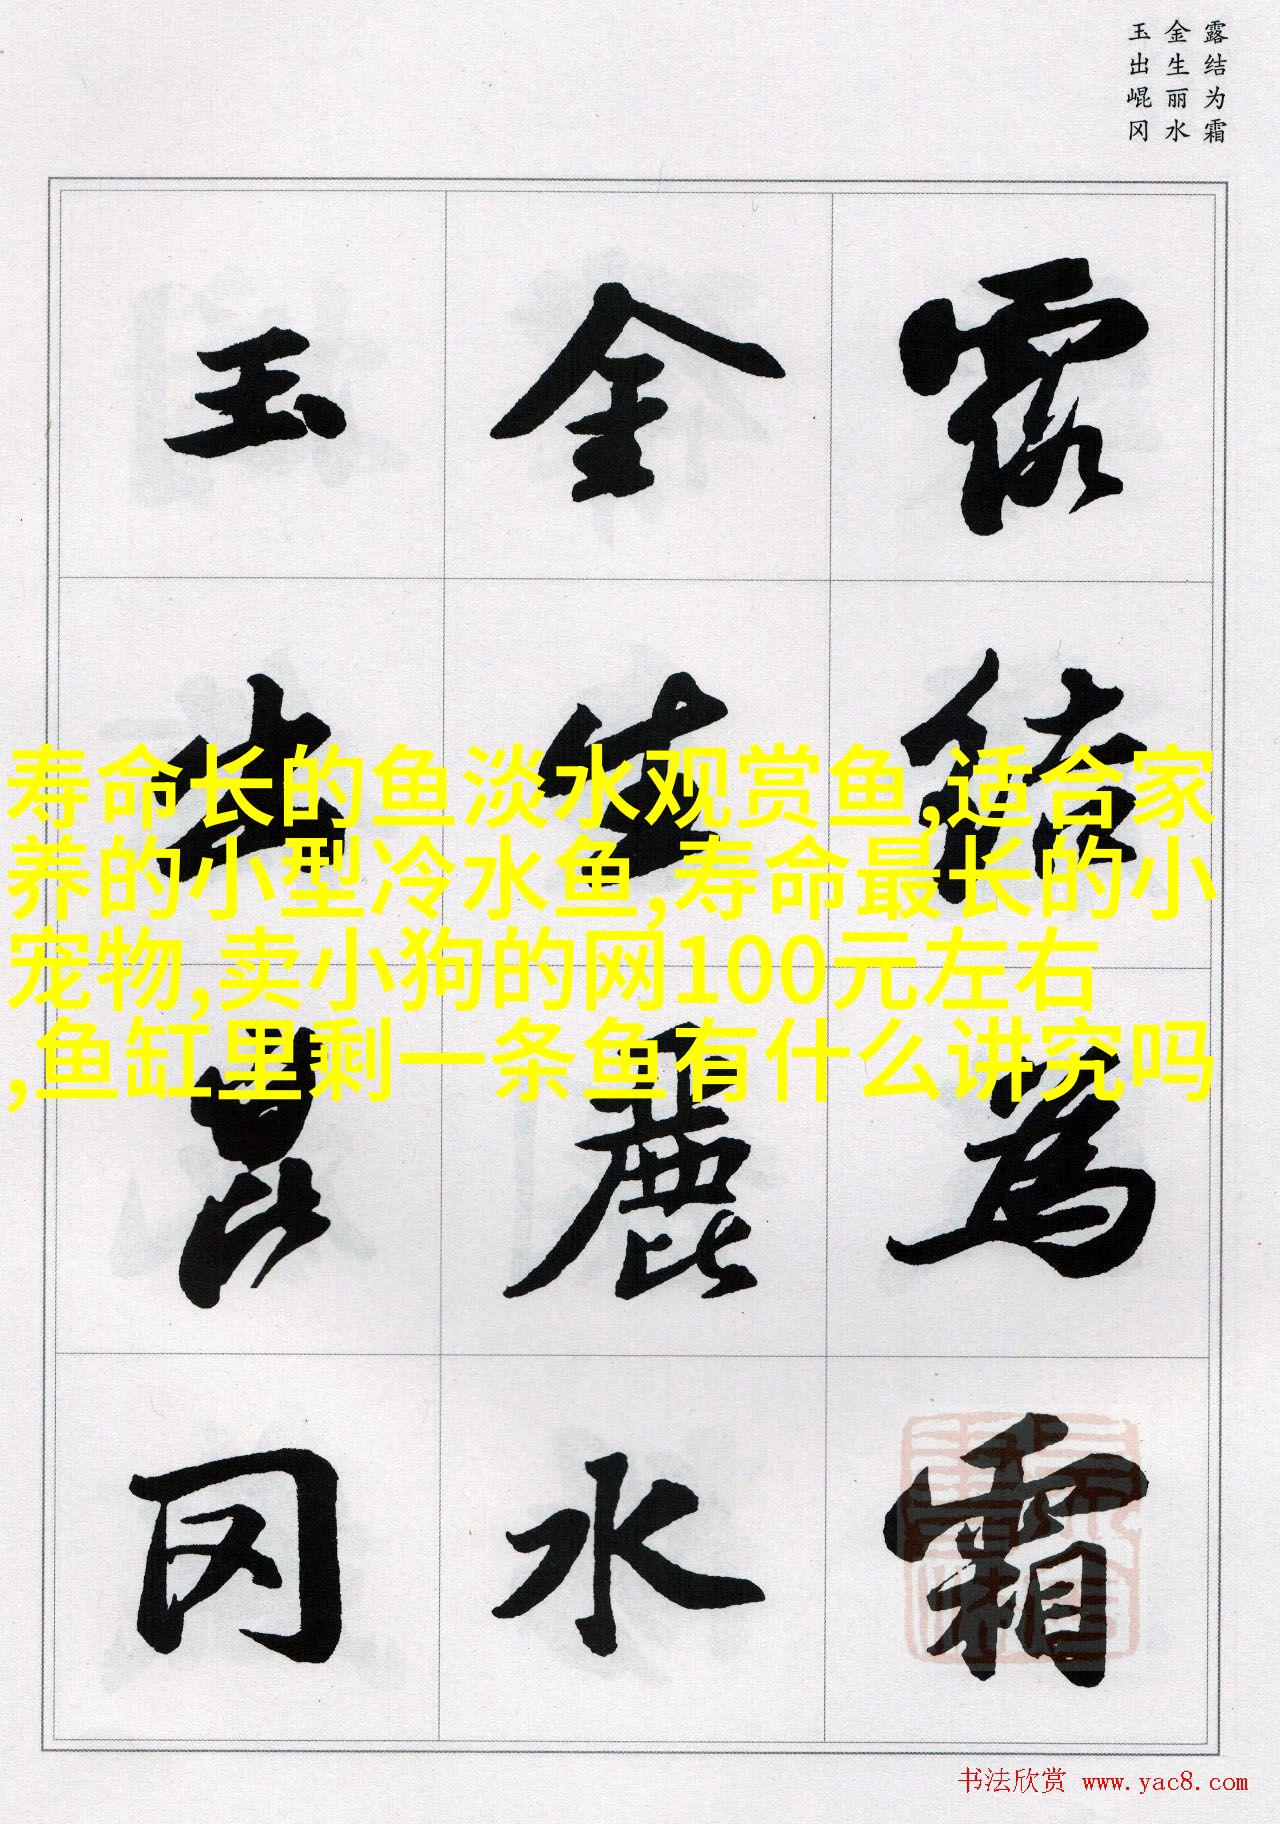 露结为霜
金生丽水
玉出崐冈
露結為霜
金生麗水
玉出崑冈
寿命长的鱼淡水观赏鱼,适合家
养的小型冷水鱼,寿命最长的小
宠物,卖小狗的网100元左右
,鱼缸里剩一条鱼有什么讲究吗
书法欣赏 www.yac8.com